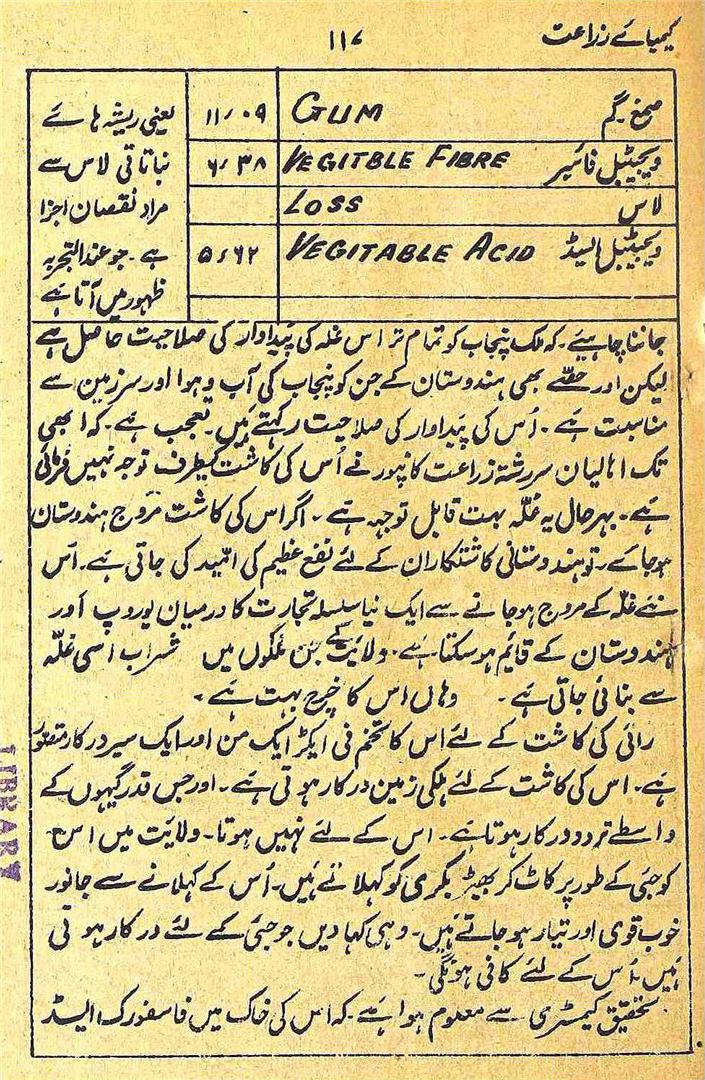 کیمیائے زراعت
۱۱۷
صمغ۔ گم GUM ۱۱٫۰۹ یعنی ریشہ ہائے
ویجیٹبل فائبر VEGITBLE FIBRE ۶٫۳۸ نباتاتی لاس سے
لاس LOSS مراد نقصان اجزا
ویجیٹبل ایسڈ VEGITABLE ACID ۵٫۶۲ ہے۔ جو عندالتجربہ
ظہور میں آتا ہے
جاننا چاہیئے۔ کہ ملک پنجاب کو تمام تر اس غلہ کی پیداوار کی صلاحیت حاصل ہے
لیکن اور حصّے بھی ہندوستان کے جن کو پنجاب کی آب و ہوا اور سرزمین سے
مناسبت ہے۔ اُس کی پیداوار کی صلاحیت رکہتے ہیں۔ تعجب ہے۔ کہ ابھی
تک اہالیان سررشتۂ زراعت کانپور نے اُس کی کاشت کیطرف توجہ نہیں فرمائی
ہے۔ بہرحال یہ غلّہ بہت قابل توجہ ہے۔ اگر اس کی کاشت مروج ہندوستان
ہوجائے۔ تو ہندوستانی کاشتکاران کے لئے نفع عظیم کی امّید کی جاتی ہے۔ اس
نئے غلّہ کے مروج ہوجانے سے ایک نیا سلسلہ تجارت کا درمیان یوروپ اور
ہندوستان کے قایم ہو سکتا ہے۔ ولایت کے جن ملکوں میں شراب اسی غلّہ
سے بنائی جاتی ہے۔ وہاں اس کا خرچ بہت ہے۔
رائی کی کاشت کے لئے اس کا تخم فی ایکڑ ایک من اور ایک سیر درکار متصور
ہے۔ اس کی کاشت کے لئے ہلکی زمین درکار ہوتی ہے۔ اور جس قدر گیہوں کے
واسطے تردد درکار ہوتا ہے۔ اس کے لئے نہیں ہوتا۔ ولایت میں اس
کو جئی کے طور پر کاٹ کر بھیڑ بکری کو کہلاتے ہیں۔ اُس کے کہلانے سے جانور
خوب قوی اور تیار ہو جاتے ہیں۔ وہی کہادیں جو جئی کے لئے درکار ہوتی
ہیں۔ اُس کے لئے کافی ہونگی۔
تحقیق کیمسٹری سے معلوم ہوا ہے۔ کہ اس کی خاک میں فاسفورک ایسڈ
LIBRARY